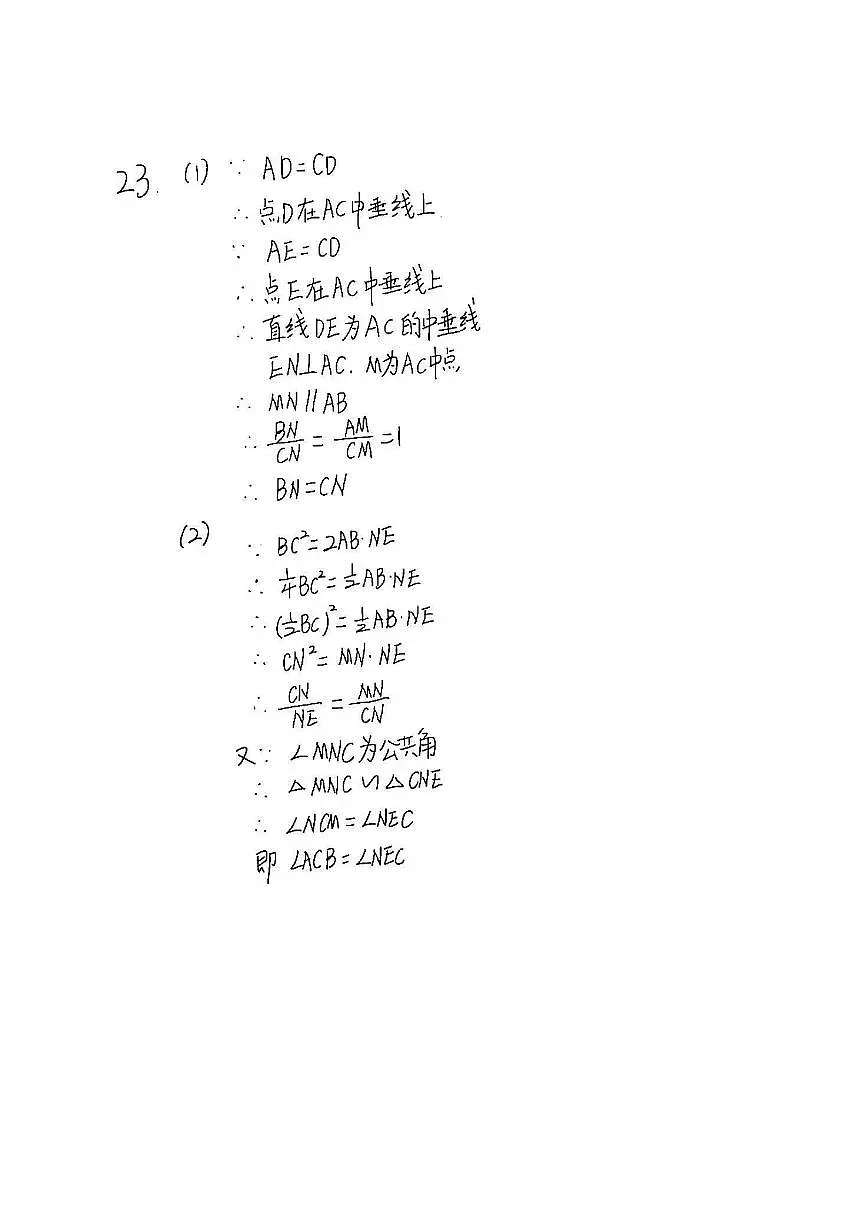 23. (1) ∵ AD=CD
∴ 点D在AC中垂线上
∵ AE=CD
∴ 点E在AC中垂线上
∴ 直线DE为AC的中垂线
EN⊥AC. M为AC中点
∴ MN∥AB
∴ BN/CN = AM/CM =1
∴ BN=CN
(2) ∵ BC²=2AB·NE
∴ 1/4BC²=1/2AB·NE
∴ (1/2BC)²=1/2AB·NE
∴ CN²=MN·NE
∴ CN/NE = MN/CN
又∵ ∠MNC为公共角
∴ △MNC∽△CNE
∴ ∠NCM=∠NEC
即 ∠ACB=∠NEC